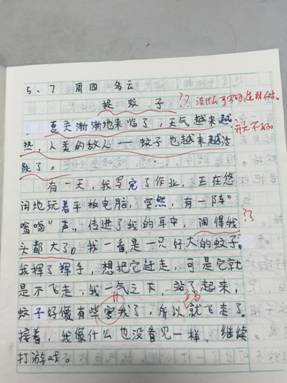 5、7 周四 多云
捉蚊子
夏天渐渐地来临了,天气越来越
热,人类的敌人——蚊子也越来越活
跃了。
有一天,我写完了作业,正在悠
闲地玩着平板电脑,突然,有一阵"
嗡嗡"声,传进了我的耳中,闹得我
头都大了。我一看是一只好大的蚊子。
我挥了挥手,想把它赶走,可是它就
是不飞走,我一气之下,站了起来,
蚊子好像有些害我了,所以就飞走了。
接着,我像什么也没看见一样,继续
打游戏。